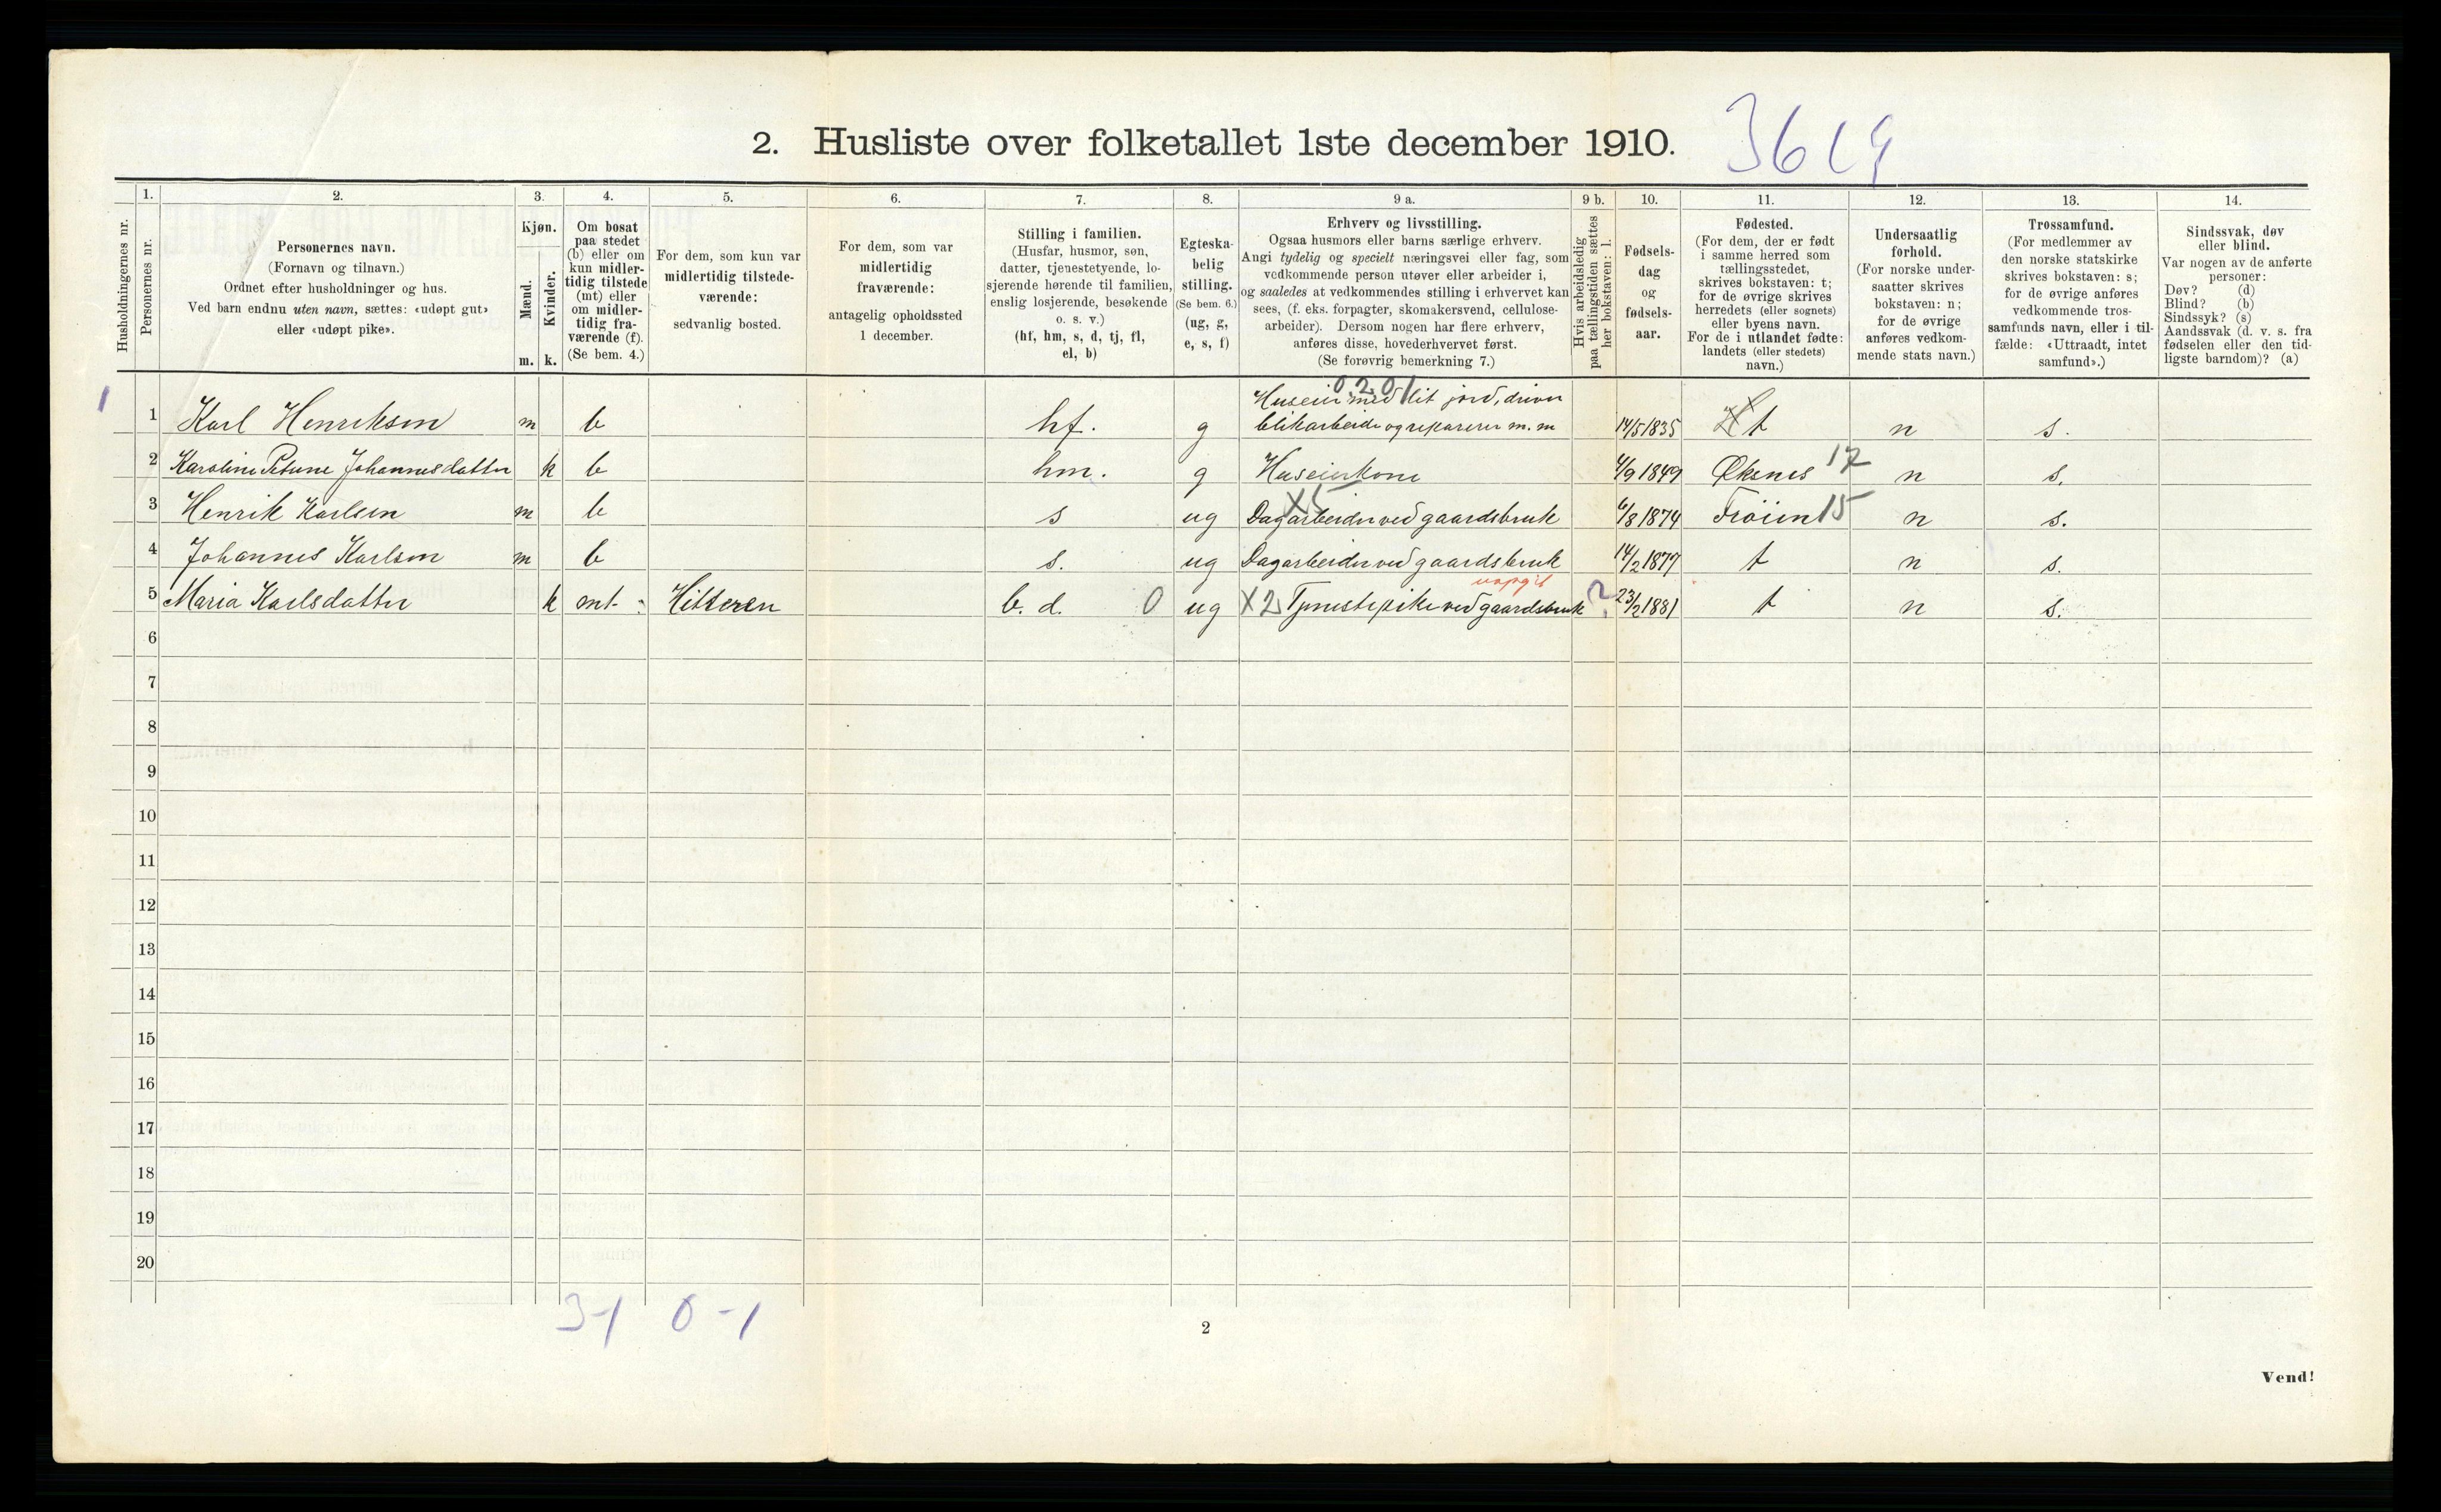 2. Husliste over folketallet 1ste december 1910.
1. 2. 3. 4. 5. 6. 7. 8. 9 a. 9 b. 10. 11. 12. 13. 14.
Husholdningernes nr.
Personernes nr.
Personernes navn.
(Fornavn og tilnavn.)
Ordnet efter husholdninger og hus.
Ved barn endnu uten navn, sættes: «udøpt gut»
eller «udøpt pike».
Kjøn.
Mænd.
Kvinder.
m. k.
Om bosat
paa stedet
(b) eller om
kun midler-
tidig tilstede
(mt) eller
om midler-
tidig fra-
værende (f).
(Se bem. 4.)
For dem, som kun var
midlertidig tilstede-
værende:
sedvanlig bosted.
For dem, som var
midlertidig
fraværende:
antagelig opholdssted
1 december.
Stilling i familien.
(Husfar, husmor, søn,
datter, tjenestetyende, lo-
sjerende hørende til familien,
enslig losjerende, besøkende
o. s. v.)
(hf, hm, s, d, tj, fl,
el, b)
Egteska-
belig
stilling.
(Se bem. 6.)
(ug, g,
e, s, f)
Erhverv og livsstilling.
Ogsaa husmors eller barns særlige erhverv.
Angi tydelig og specielt næringsvei eller fag, som
vedkommende person utøver eller arbeider i,
og saaledes at vedkommendes stilling i erhvervet kan
sees, (f. eks. forpagter, skomakersvend, cellulose-
arbeider). Dersom nogen har flere erhverv,
anføres disse, hovederhvervet først.
(Se forøvrig bemerkning 7.)
Hvis arbeidsledig
paa tællingstiden sættes
her bokstaven: l.
Fødsels-
dag
og
fødsels-
aar.
Fødested.
(For dem, der er født
i samme herred som
tællingsstedet,
skrives bokstaven: t;
for de øvrige skrives
herredets (eller sognets)
eller byens navn.
For de i utlandet fødte:
landets (eller stedets)
navn.)
Undersaatlig
forhold.
(For norske under-
saatter skrives
bokstaven: n;
for de øvrige
anføres vedkom-
mende stats navn.)
Trossamfund.
(For medlemmer av
den norske statskirke
skrives bokstaven: s;
for de øvrige anføres
vedkommende tros-
samfunds navn, eller i til-
fælde: «Uttraadt, intet
samfund».)
Sindssvak, døv
eller blind.
Var nogen av de anførte
personer:
Døv? (d)
Blind? (b)
Sindssyk? (s)
Aandssvak (d. v. s. fra
fødselen eller den tid-
ligste barndom)? (a)
0201
Huseier med lit jord, driver
1 1 Karl Henriksen m b hf. g blikarbeide og reparerer m. m 14/5 1835 t n s.
2 Karoline Petrine Johannesdatter k b hm. g Huseierkone 4/9 1849 Øksnes 17 n s.
X5
3 Henrik Karlsen m b s ug Dagarbeider ved gaardsbruk 6/8 1874 Frøien 15 n s.
4 Johannes Karlsen m b s. ug Dagarbeider ved gaardsbruk 14/2 1877 t n s.
5 Maria Karlsdatter k mt. Hitteren b. d. 0 ug X2 Tjenestepike ved gaardsbruk ? 23/2 1881 t n s.
6
7
8
9
10
11
12
13
14
15
16
17
18
19
20
3-1 0-1
2
Vend!